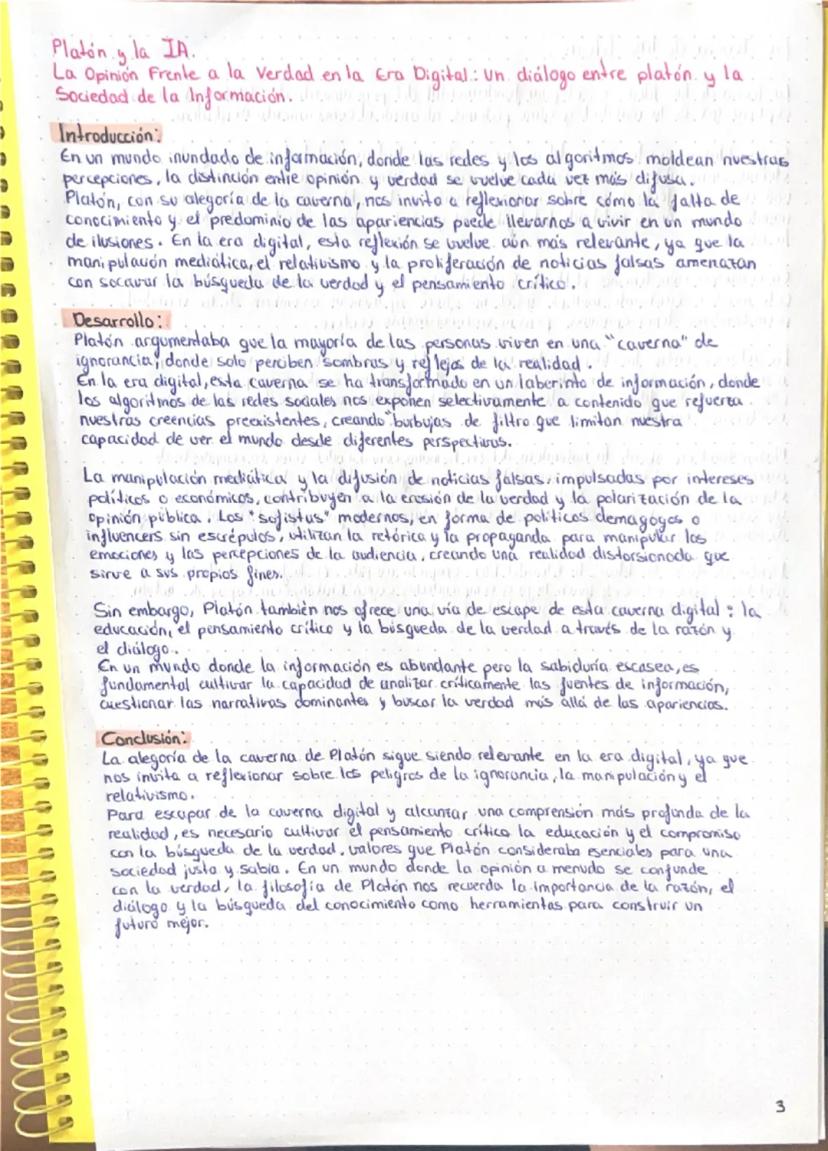 Platón y la IA.
La Opinión Frente a la Verdad en la Era Digital: Un diálogo entre platón y la
Sociedad de la Información.
Introducción:
En un mundo inundado de información, donde las redes y los algoritmos moldean nuestras
percepciones, la distinción entre opinión y verdad se vuelve cada vez más difusa.
Platón, con su alegoría de la caverna, nos invita a reflexionar sobre cómo la falta de
conocimiento y el predominio de las apariencias puede llevarnos a vivir en un mundo
de ilusiones. En la era digital, esta reflexión se vuelve aún más relevante, ya que la
manipulación mediática, el relativismo y la proliferación de noticias falsas amenazan
con socavar la búsqueda de la verdad y el pensamiento crítico.
Desarrollo:
Platón argumentaba que la mayoría de las personas viven en una "caverna" de
ignorancia, donde solo perciben sombras y reflejos de la realidad.
En la era digital, esta caverna se ha transformado en un laberinto de información, donde
los algoritmos de las redes sociales nos exponen selectivamente a contenido que refuerza
nuestras creencias preexistentes, creando "burbujas de filtro que limitan nuestra
capacidad de ver el mundo desde diferentes perspectivas.
La manipulación mediática y la difusión de noticias falsas, impulsadas por intereses
políticos o económicos, contribuyen a la erosión de la verdad y la polarización de la
opinión pública. Los "sofistas" modernos, en forma de políticos demagogos o
influencers sin escrúpulos, utilizan la retórica y la propaganda para manipular las
emociones y las percepciones de la audiencia, creando una realidad distorsionada que
sirve a sus propios fines.
Sin embargo, Platón también nos ofrece una vía de escape de esta caverna digital: la
educación, el pensamiento crítico y la búsqueda de la verdad a través de la razón y
el diálogo.
En un mundo donde la información es abundante pero la sabiduría escasea, es
fundamental cultivar la capacidad de analizar críticamente las fuentes de información,
cuestionar las narrativas dominantes y buscar la verdad más allá de las apariencias.
Conclusión:
La alegoría de la caverna de Platón sigue siendo relevante en la era digital, ya que
nos invita a reflexionar sobre los peligros de la ignorancia, la manipulación y el
relativismo.
Para escapar de la caverna digital y alcanzar una comprensión más profunda de la
realidad, es necesario cultivar el pensamiento crítico la educación y el compromiso
con la búsqueda de la verdad, valores que Platón consideraba esenciales para una
sociedad justa y sabia. En un mundo donde la opinión a menudo se confunde
con la verdad, la filosofía de Platón nos recuerda la importancia de la razón, el
diálogo y la búsqueda del conocimiento como herramientas para construir un
futuro mejor.
3